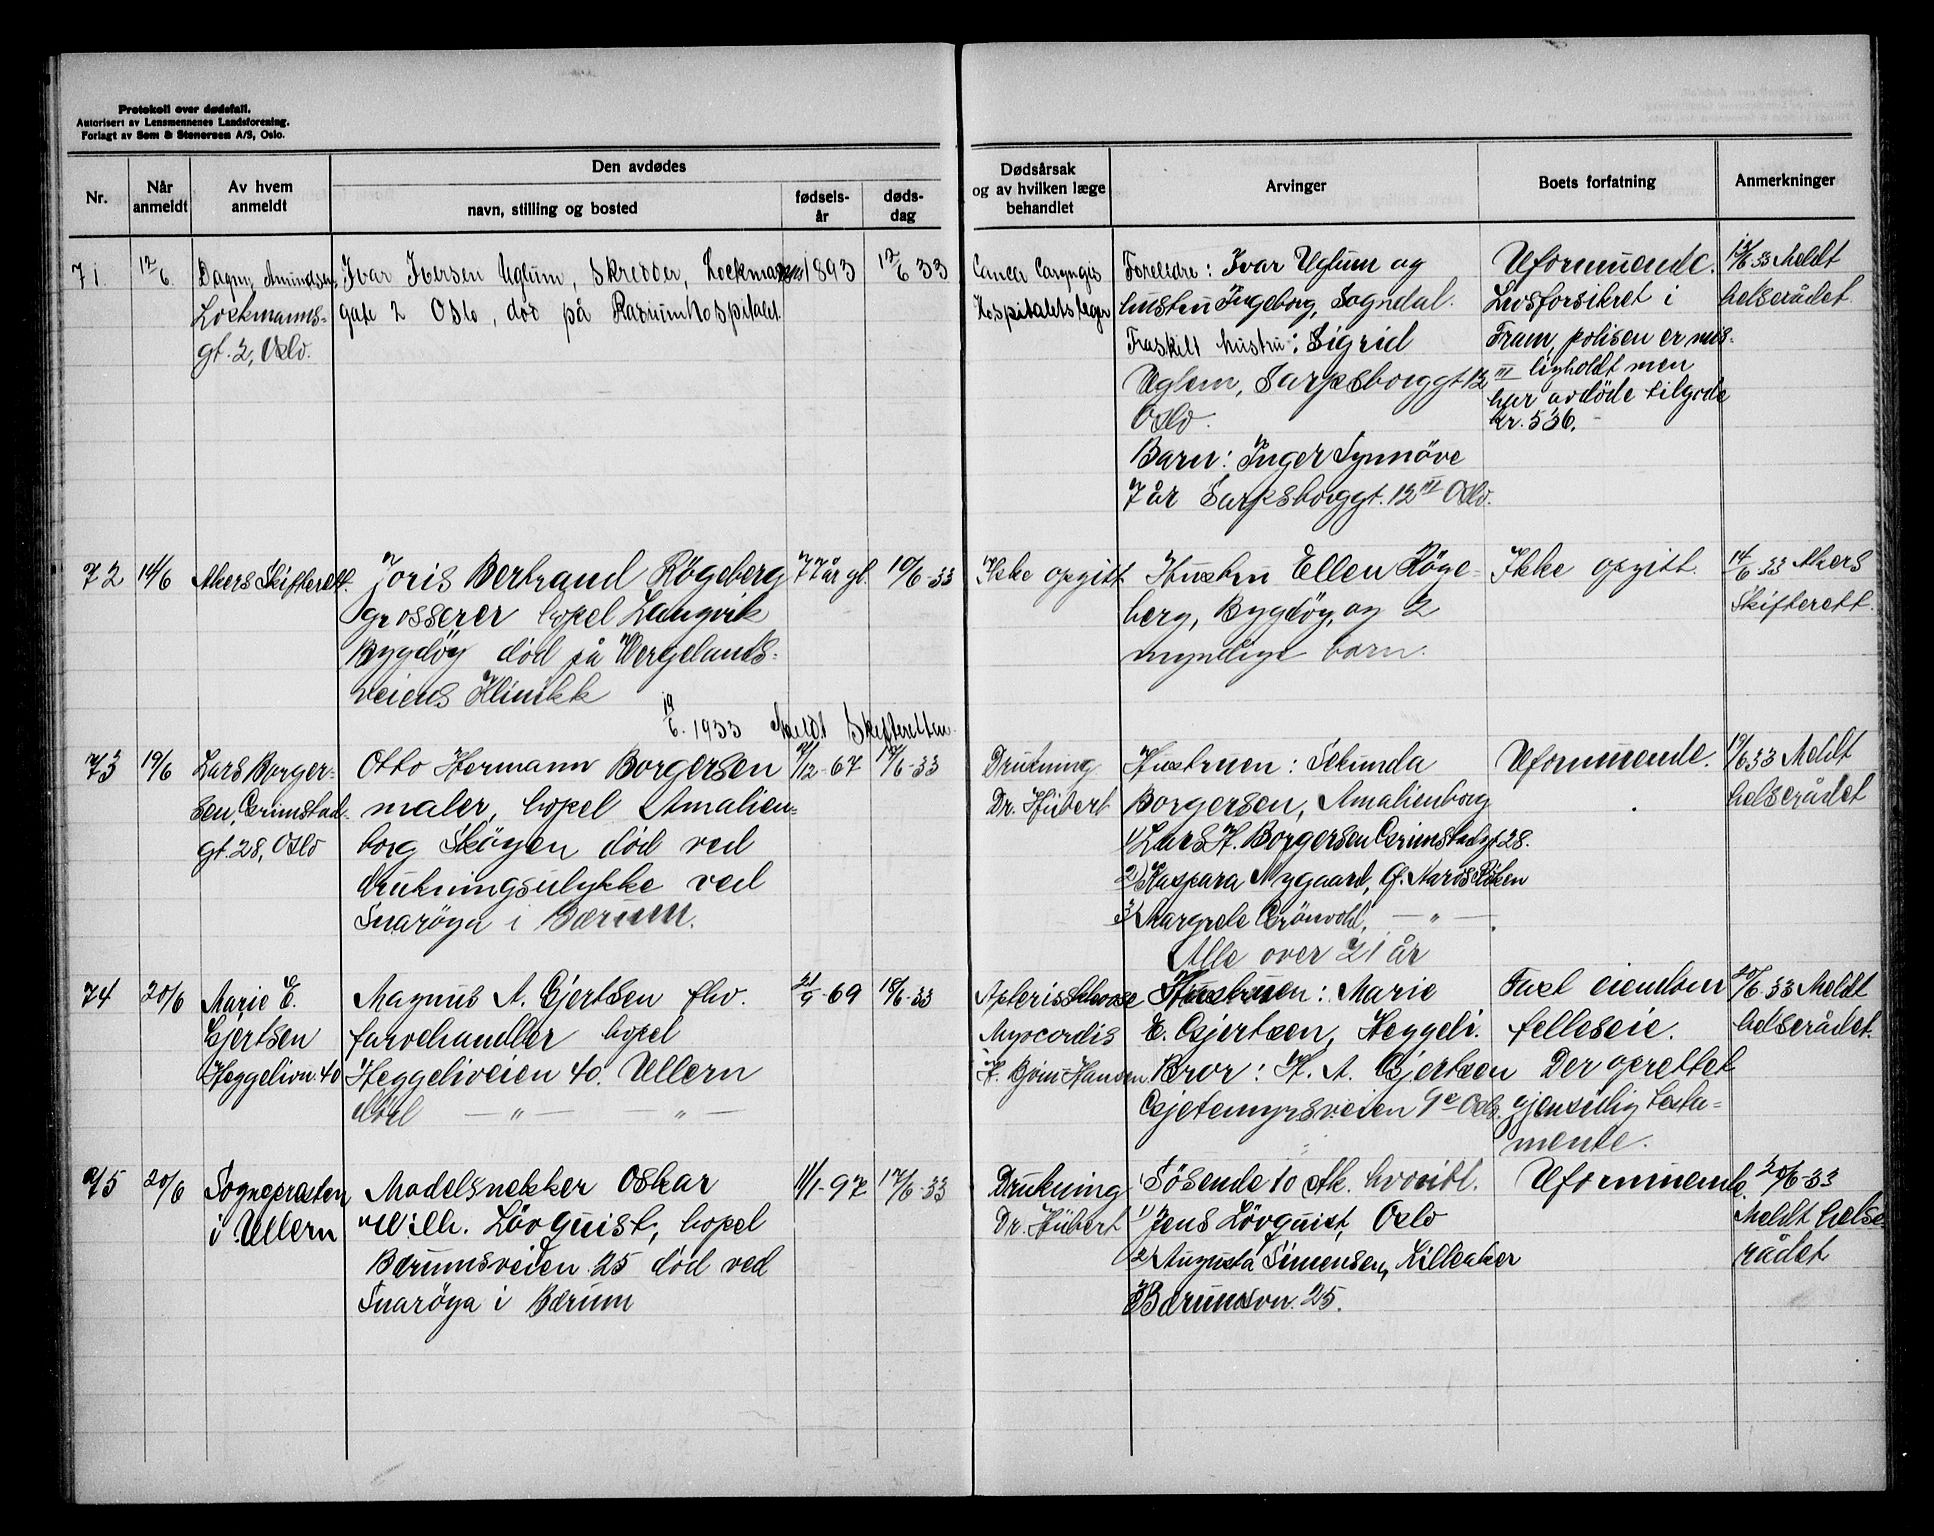 Protokoll over dødsfall.
Autorisert av Lensmennenes Landsforening.
Forlagt av Sem & Stenersen A/S, Oslo.
Nr.
Når
anmeldt
Av hvem
anmeldt
Den avdødes
navn, stilling og bosted
fødsels-
år
døds-
dag
Dødsårsak
og av hvilken læge
behandlet
Arvinger
Boets forfatning
Anmerkninger
71.
12/6.
Dagny Amundsen
Lockmanns-
gt. 2, Oslo.
Ivar Iversen Uglum, skredder, Lockmanns
gate 2 Oslo, død på Radiumhospitalet
1893
12/6 33
Cancer Laryngis
Hospitalets læger
Foreldre: Ivar Uglum og
hustru Ingeborg, Sogndal.
Fraskilt hustru: Sigrid
Uglem, Sarpsborggt 12 III
Oslo.
Barn: Inger Synnöve
7 år Sarpsborggt. 12 III Oslo.
Uformuende.
Livsforsikret i
Fram, polisen er mis-
ligholdt men
har avdöde tilgode
kr. 536.-
12/6 33 Meldt
helserådet
72
14/6
Akers Skifterett.
Joris Bertrand Røgeberg
grosserer bopel Langvik
Bygdöy död på Wergelands-
veiens Klinikk
77 år gl.
10/6-33
Ikke opgitt
Hustru Ellen Röge-
berg, Bygdöy, og 2
myndige barn.
Ikke opgitt.
14/6 33 Akers
Skifterett.
19/6. 1933 Meldt Skifteretten
73
19/6
Lars Borger-
sen, Grimstad-
gt. 28, Oslo
Otto Hermann Borgersen
maler, bopel Amalien-
borg Sköyen död ved
drukningsulykke ved
Snaröya i Bærum.
/12-67
/6-33
Drukning
Dr. Hübert
Hustruen: Sekunda
Borgersen, Amalienborg
1) Lars H. Borgersen Grimstadgt 28.
2) Kaspara Nygaard, Röken
3) Margrete Grönvold, — " —
Alle over 21 år
Uformuende.
19/6 33 Meldt
helserådet
74
20/6
Marie E.
Gjertsen
Heggelivn 40
Magnus A. Gjertsen fhv.
farvehandler bopel
Heggeliveien 40. Ullern
död — " — — " —
21/9-69
18/6-33
Myocordis
Hustruen: Marie
E. Gjertsen, Heggeli.
Bror: H. A. Gjertsen
Gjetemyrsveien Oslo.
Fast eiendom
felleseie.
Der oprettet
gjensidig testa-
mente.
20/6-33 Meldt
helserådet.
75
20/6
Sognepræsten
i Ullern
Modelsnekker Oskar
Wilh. Lövquist, bopel
Bærumsveien 25 död ved
Snaröya i Bærum
11/1-97
17/6-33
Drukning
Dr. Hübert
Sösende 10 stk. hvoribl.
1) Jens Lövquist, Oslo
2) Augusta Simensen, Lilleaker
Bærumsvn. 25.
Uformuende.
20/6-33
Meldt helse
rådet